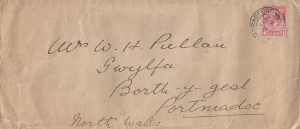 Mrs W. H. Pullan
Gwylfa
Borth-y-gest
Portmadoc
North Wales